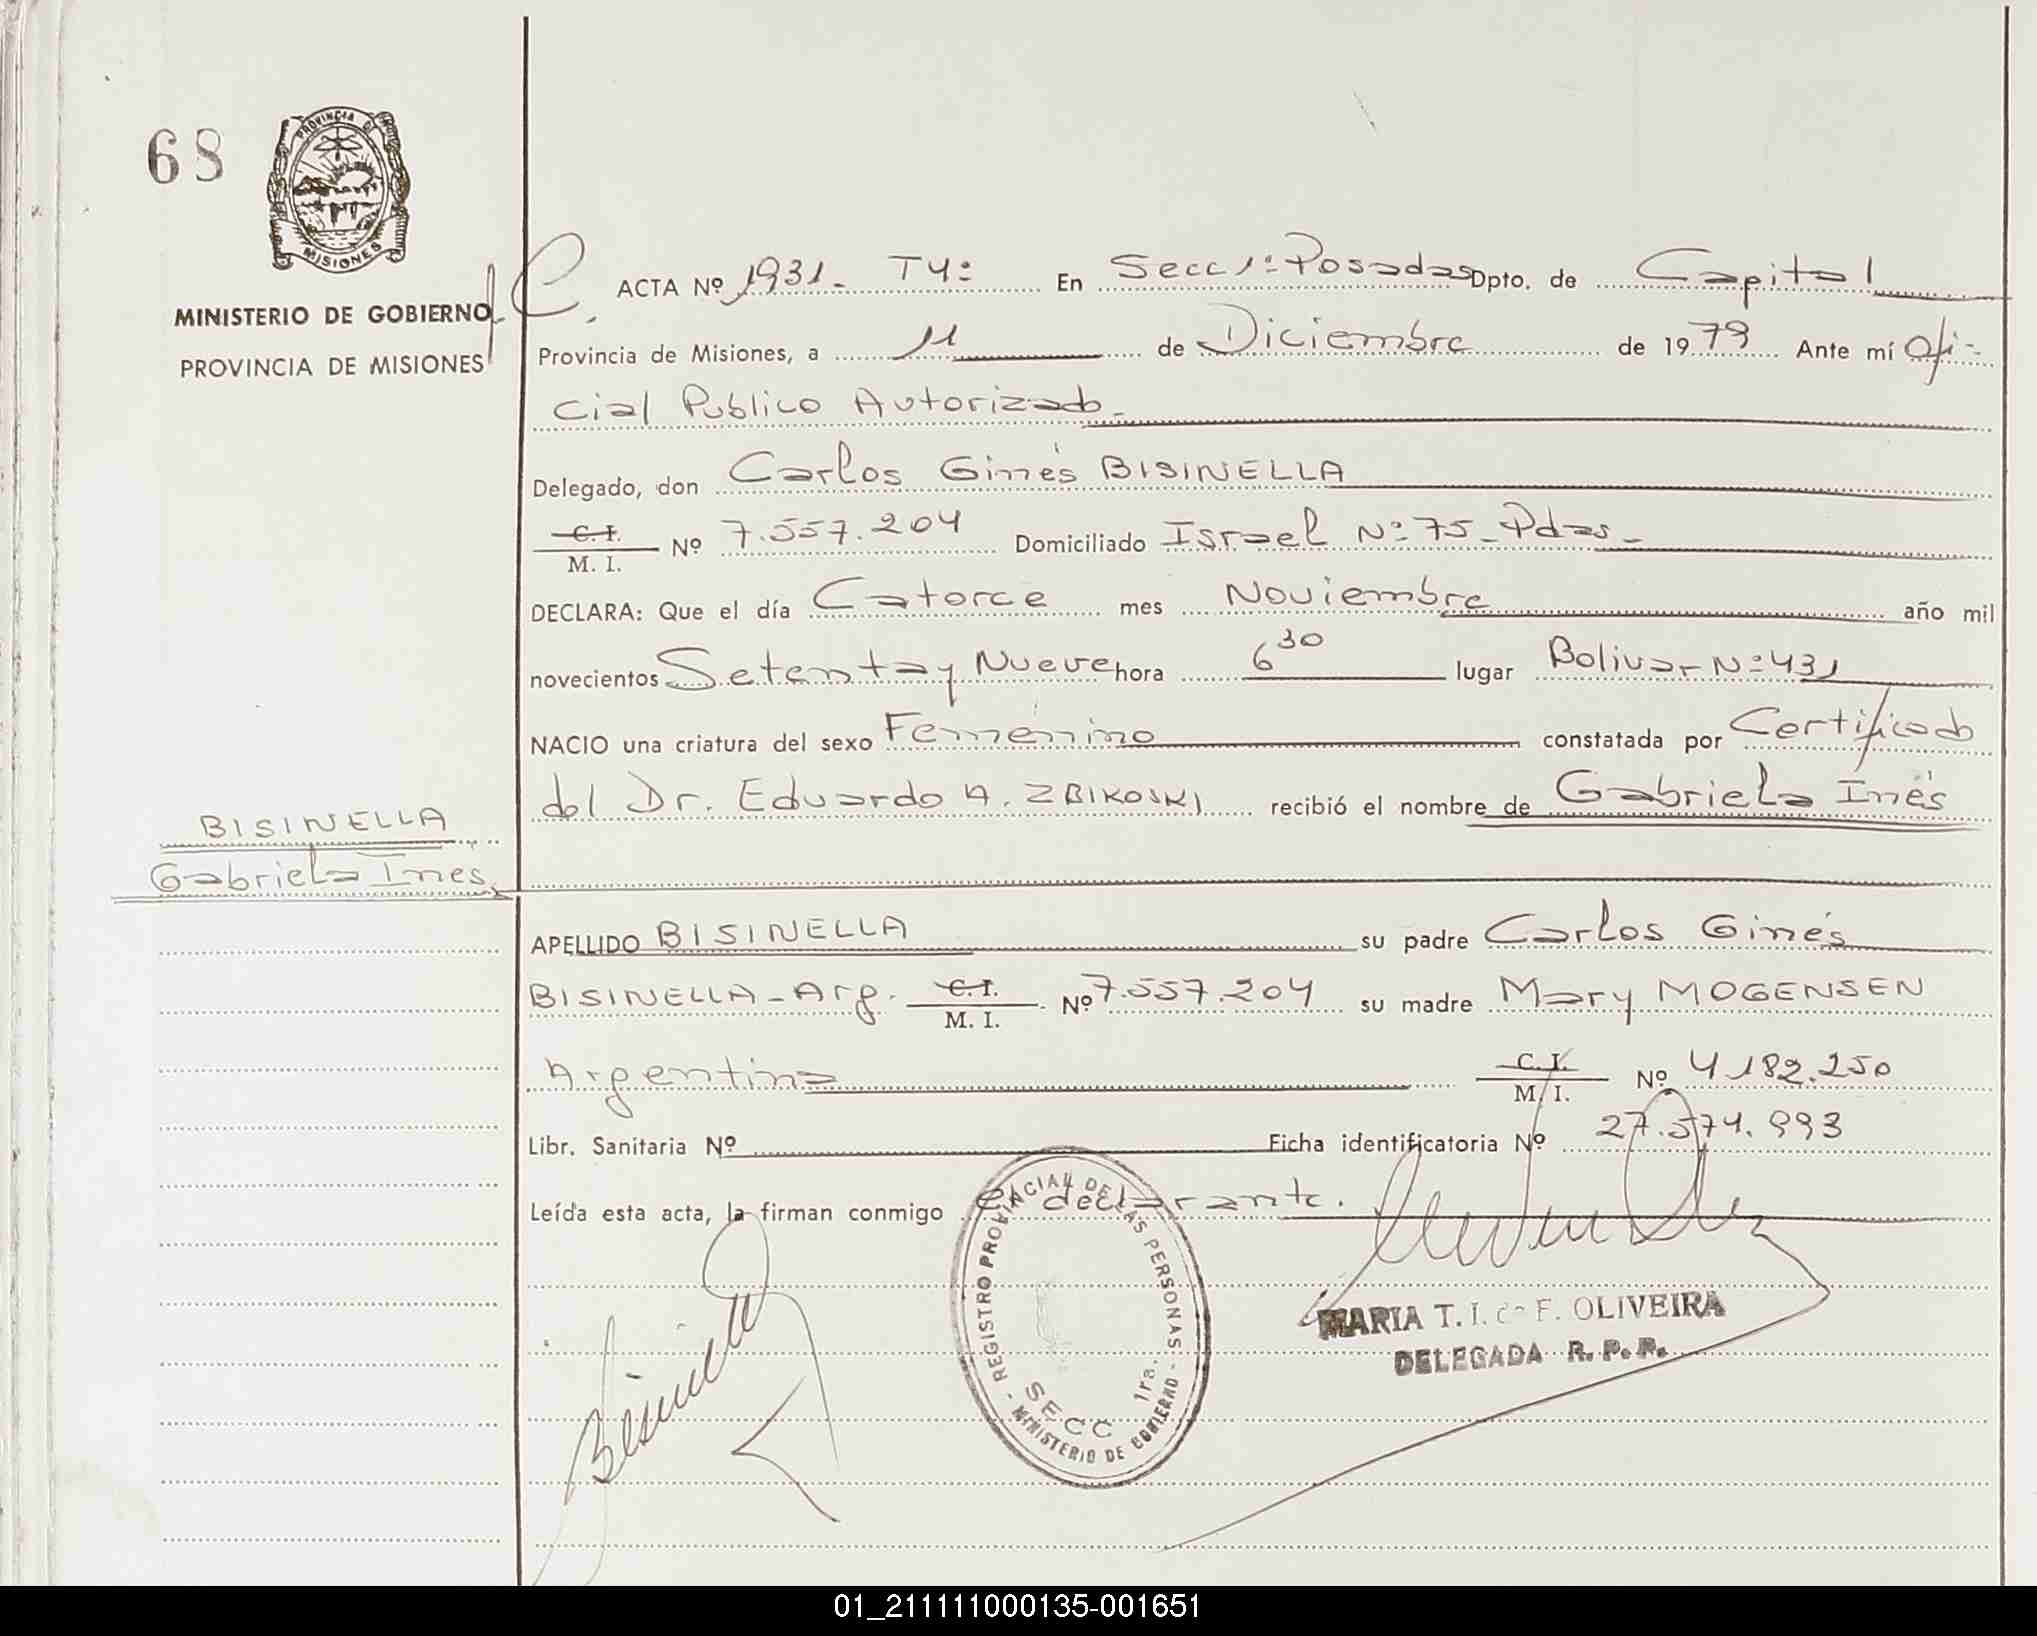 68
PROVINCIA DE
MISIONES
MINISTERIO DE GOBIERNO
PROVINCIA DE MISIONES
ACTA Nº 1931 - T4º En Secc 1º Posadas Dpto. de Capital
Provincia de Misiones, a 11 de Diciembre de 1979 Ante mí Ofi-
cial Publico Autorizado -
Delegado, don Carlos Ginés BISINELLA
C. I. / M. I. Nº 7.557.204 Domiciliado Israel Nº 75 - Pdas -
DECLARA: Que el día Catorce mes Noviembre año mil
novecientos Setenta y Nueve hora 6 30 lugar Bolivar Nº 431
NACIO una criatura del sexo Femenino constatada por Certificado
del Dr. Eduardo A. ZBIKOSKI recibió el nombre de Gabriela Inés
BISINELLA
Gabriela Ines
APELLIDO BISINELLA su padre Carlos Ginés
BISINELLA - Arg. C. I. / M. I. Nº 7.557.204 su madre Mary MOGENSEN
Argentina C. I. / M. I. Nº 4182.250
Libr. Sanitaria Nº Ficha identificatoria Nº 27.574.993
Leída esta acta, la firman conmigo el declarante.
REGISTRO PROVINCIAL DE LAS PERSONAS - MINISTERIO DE GOBIERNO -
SECC 1ra.
MARIA T. I. de F. OLIVEIRA
DELEGADA R. P. P.
Bisinella
01_211111000135-001651